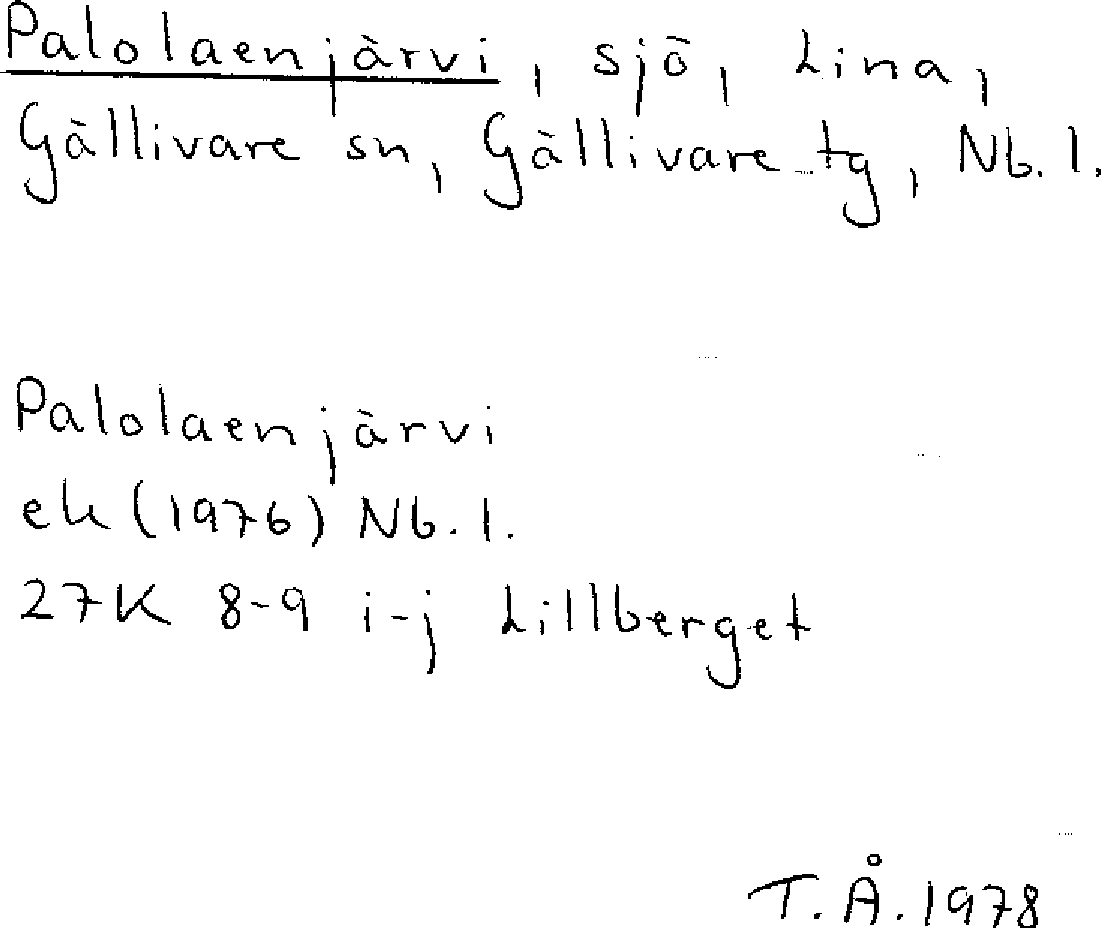 Palolaenjärvi, sjö, Lina,
Gällivare sn, Gällivare tg, Nb. l.
Palolaenjärvi
ek (1976) Nb. l.
27K 8-9 i-j Lillberget
T. Å. 1978